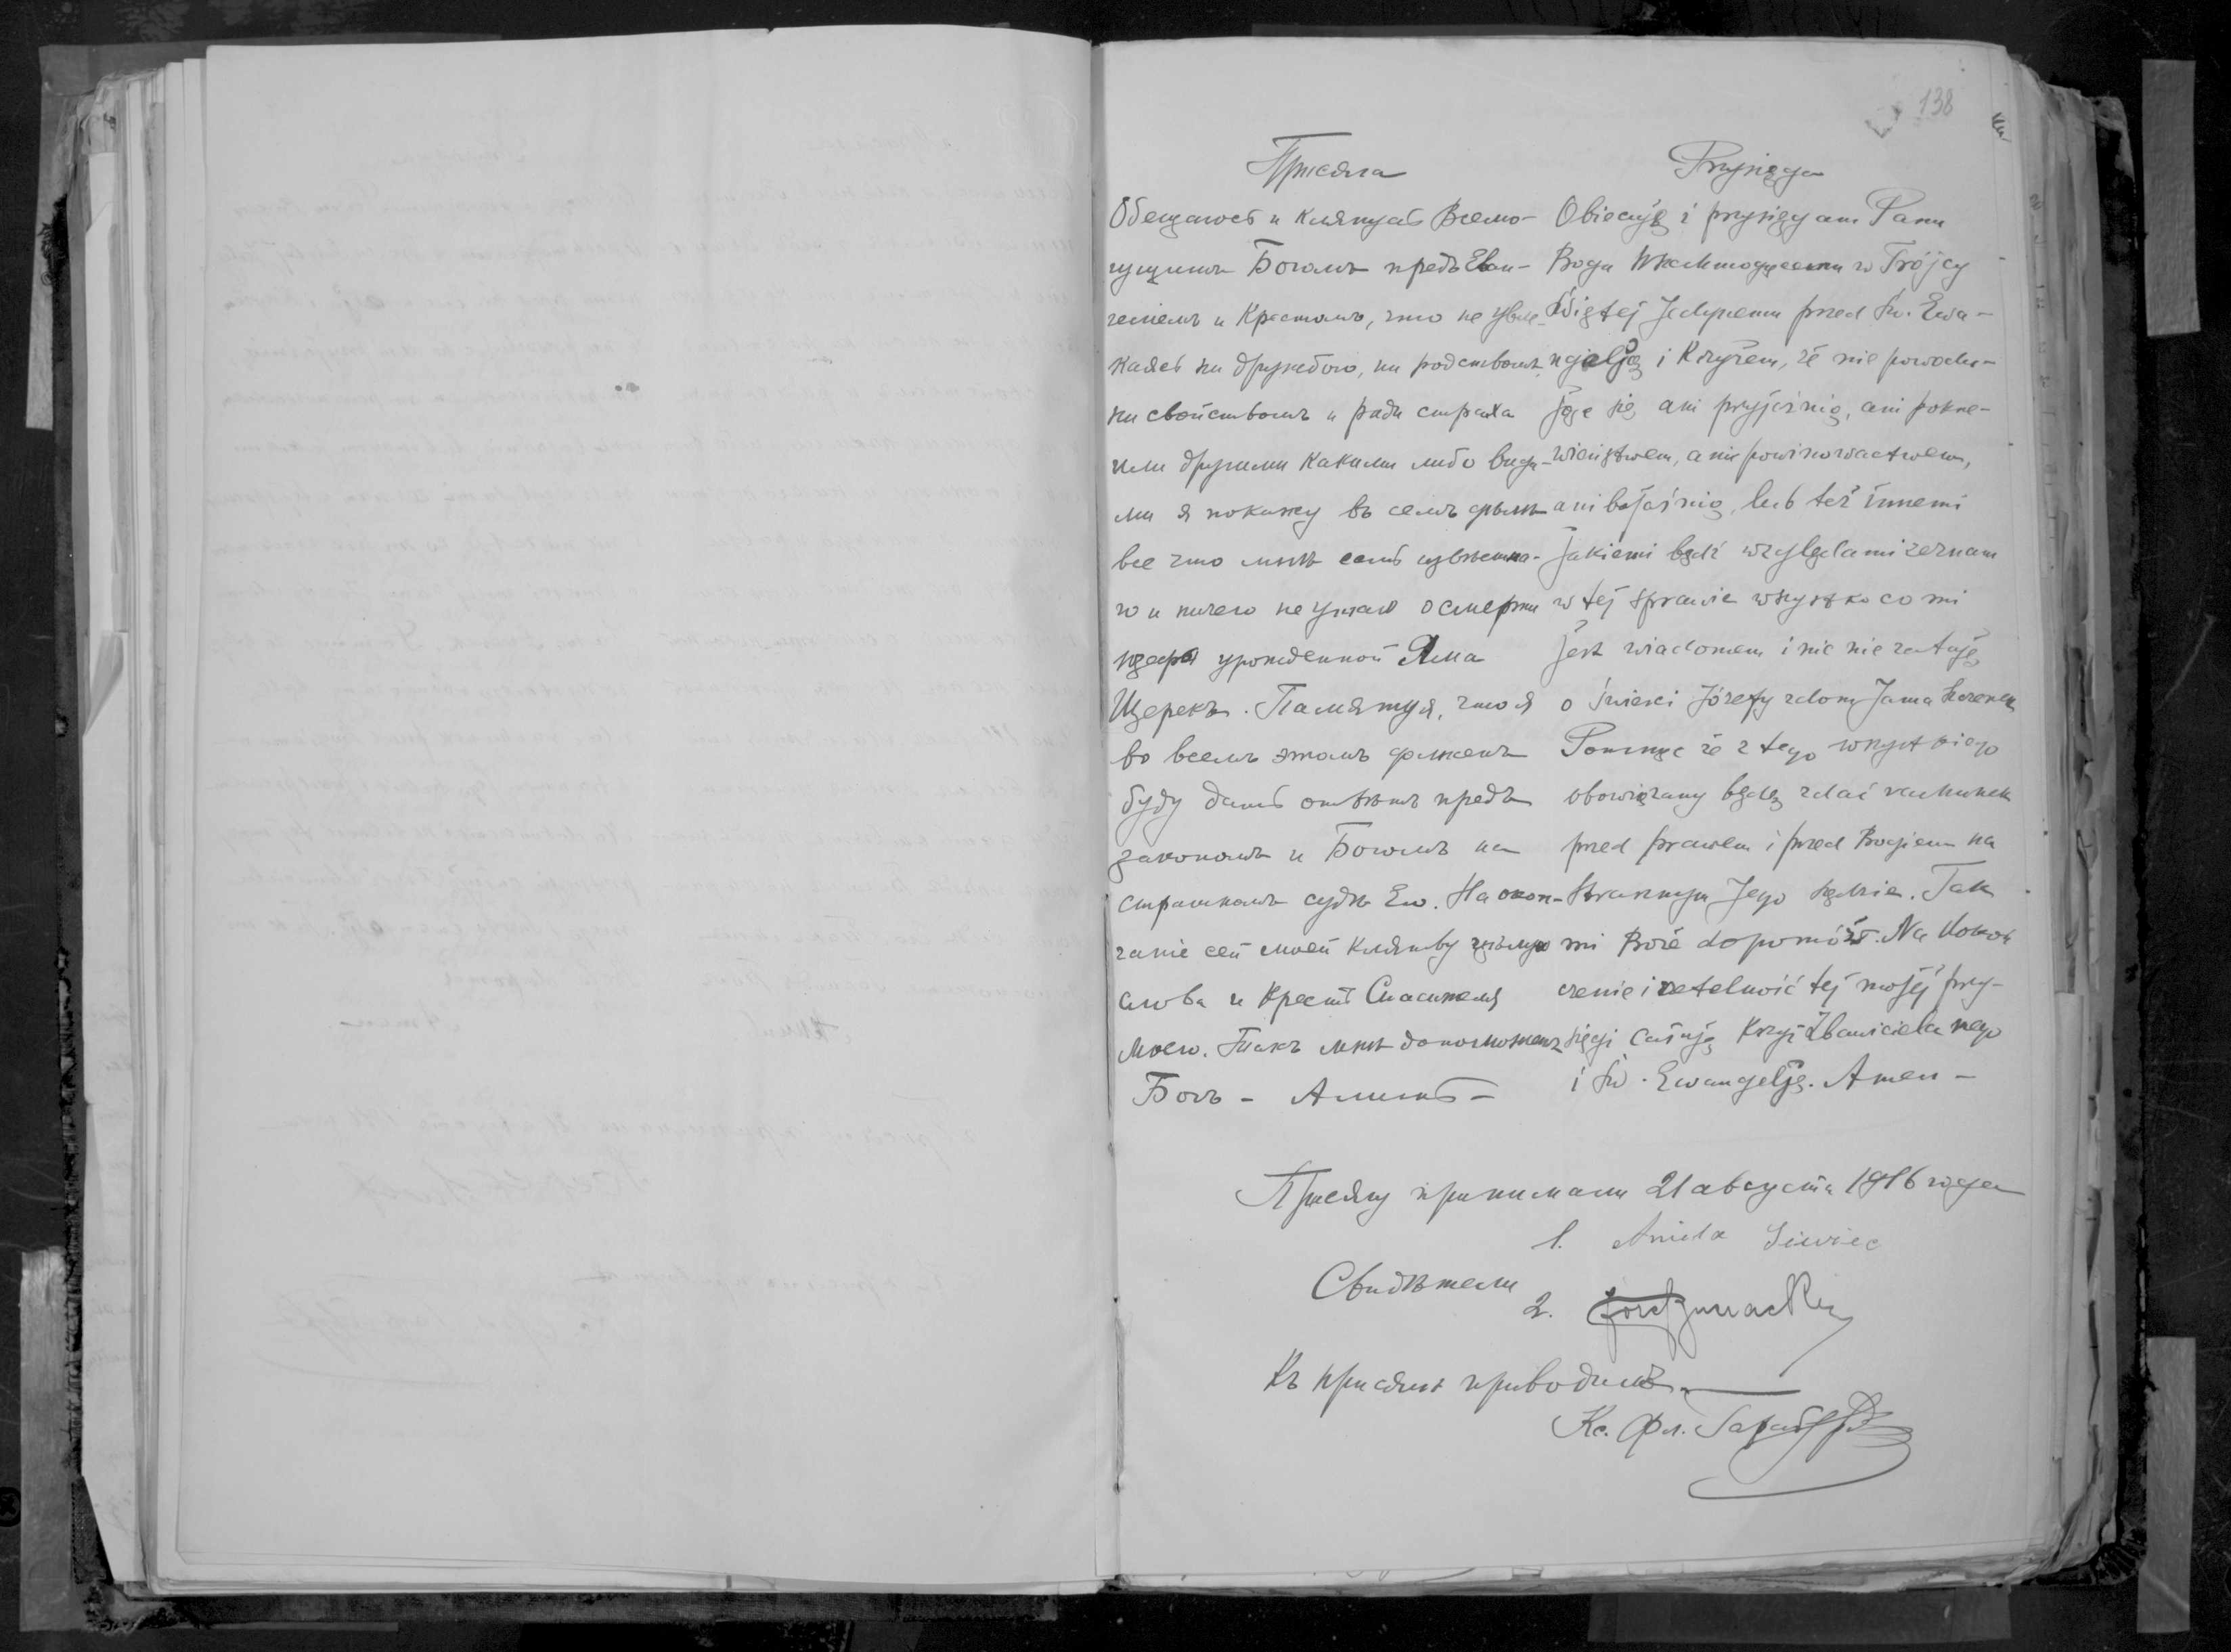 138
Присяга
Обещаюсь и клянусь Всемо-
гущимъ Богомъ предъ Еван-
гелiемъ и Крестомъ, что не увле-
каясь ни дружбою, ни родствомъ,
ни свойствомъ и ради страха
или другими какими либо вида-
ми я покажу въ семъ дѣлѣ
все что мнѣ есть извѣстна-
го и ничего не утаю о смерти
урожденной Яма
Щерекъ. Памятуя, что я
во всемъ этомъ долженъ
буду дать отвѣтъ предъ
закономъ и Богомъ на
страшномъ судѣ Его. На окон-
чанiе сей моей клятвы цѣлую
слова и Крестъ Спасителя
моего. Такъ мнѣ допоможетъ
Богъ - Аминь -
Przysięga
Obiecuję i przysięgam Panu
Bogu Wszechmogącemu w Trójcy
Świętej Jedynemu przed Św. Ewa-
ngelją i Krzyżem, że nie powodu-
jąc się ani przyjaźnią, ani pokre-
wieństwem, ani powinowactwem,
ani bojaźnią, lub też innemi
jakiemi bądź względami zeznam
w tej sprawie wszystko co mi
jest wiadomem i nic nie zataję
o śmierci Józefy z domu Jama Szczerek
Pomnąc że z tego wszystkiego
obowiązany będę zdać rachunek
przed prawem i przed Bogiem na
strasznym Jego sądzie. Tak
mi Boże dopomóż. Na dokoń
czenie i rzetelność tej mojej przy-
sięgi całuję Krzyż Zbawiciela mego
i Św. Ewangelję. Amen -
Присягу принимали 21 августа 1916 года
1. Aniela Siwiec
Свидѣтели
2.
Къ присягѣ приводилъ
Кс. Фл.